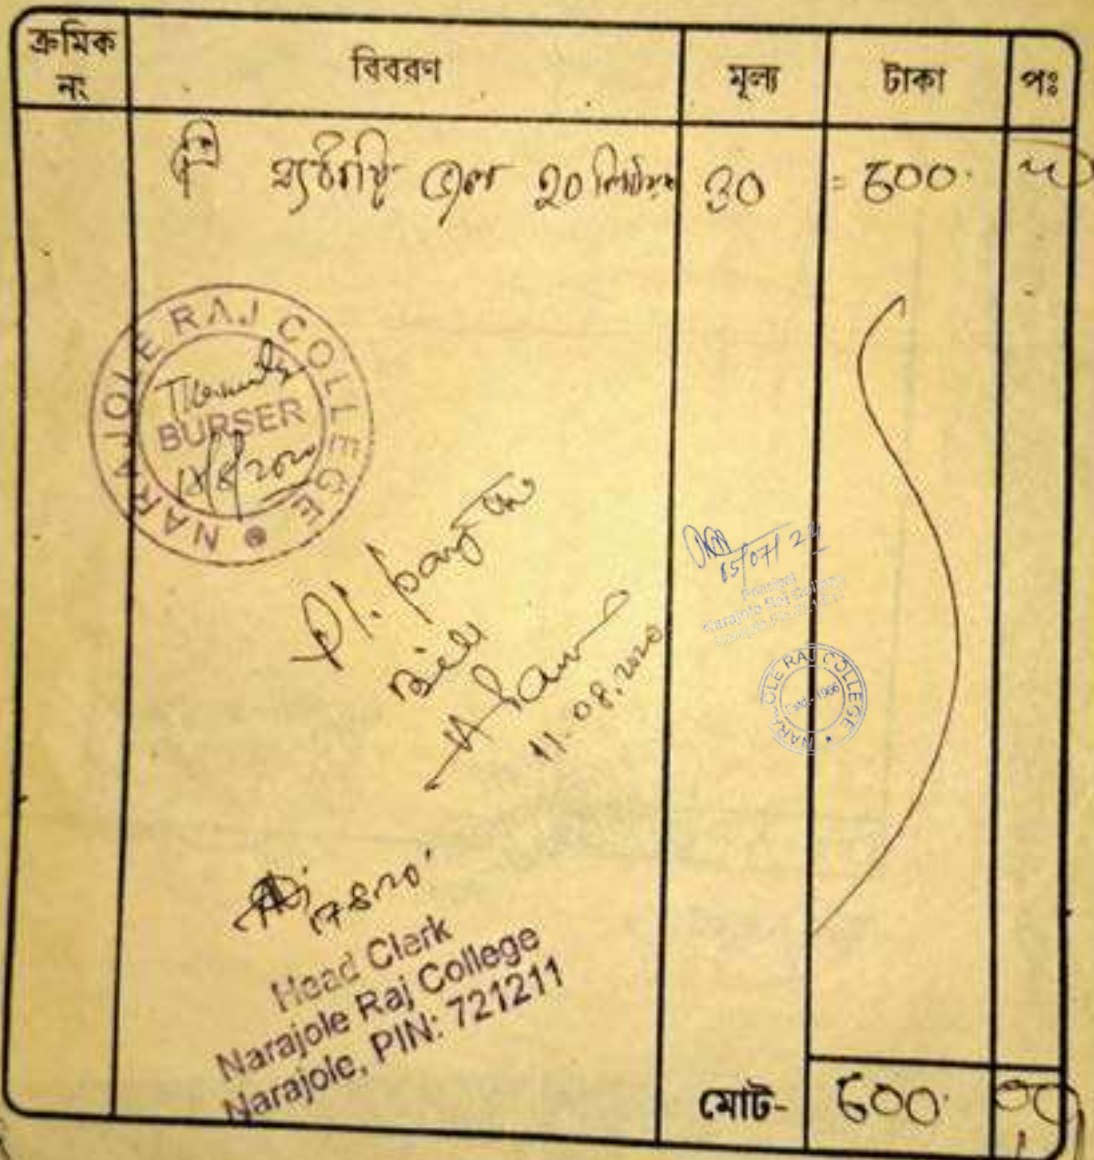 ক্রমিক নং বিবরণ মূল্য টাকা পঃ
ব্যাটারী জল 20 লিটার 30 = 600.
NARAJOLE RAJ COLLEGE
BURSER
18/8/2020
Pl. pay the
Bill
11.08.2020
15/07/22
Principal
Narajole Raj College
NARAJOLE RAJ COLLEGE
Estd-1966
17.8.20
Head Clerk
Narajole Raj College
Narajole, PIN: 721211
মোট- 600.